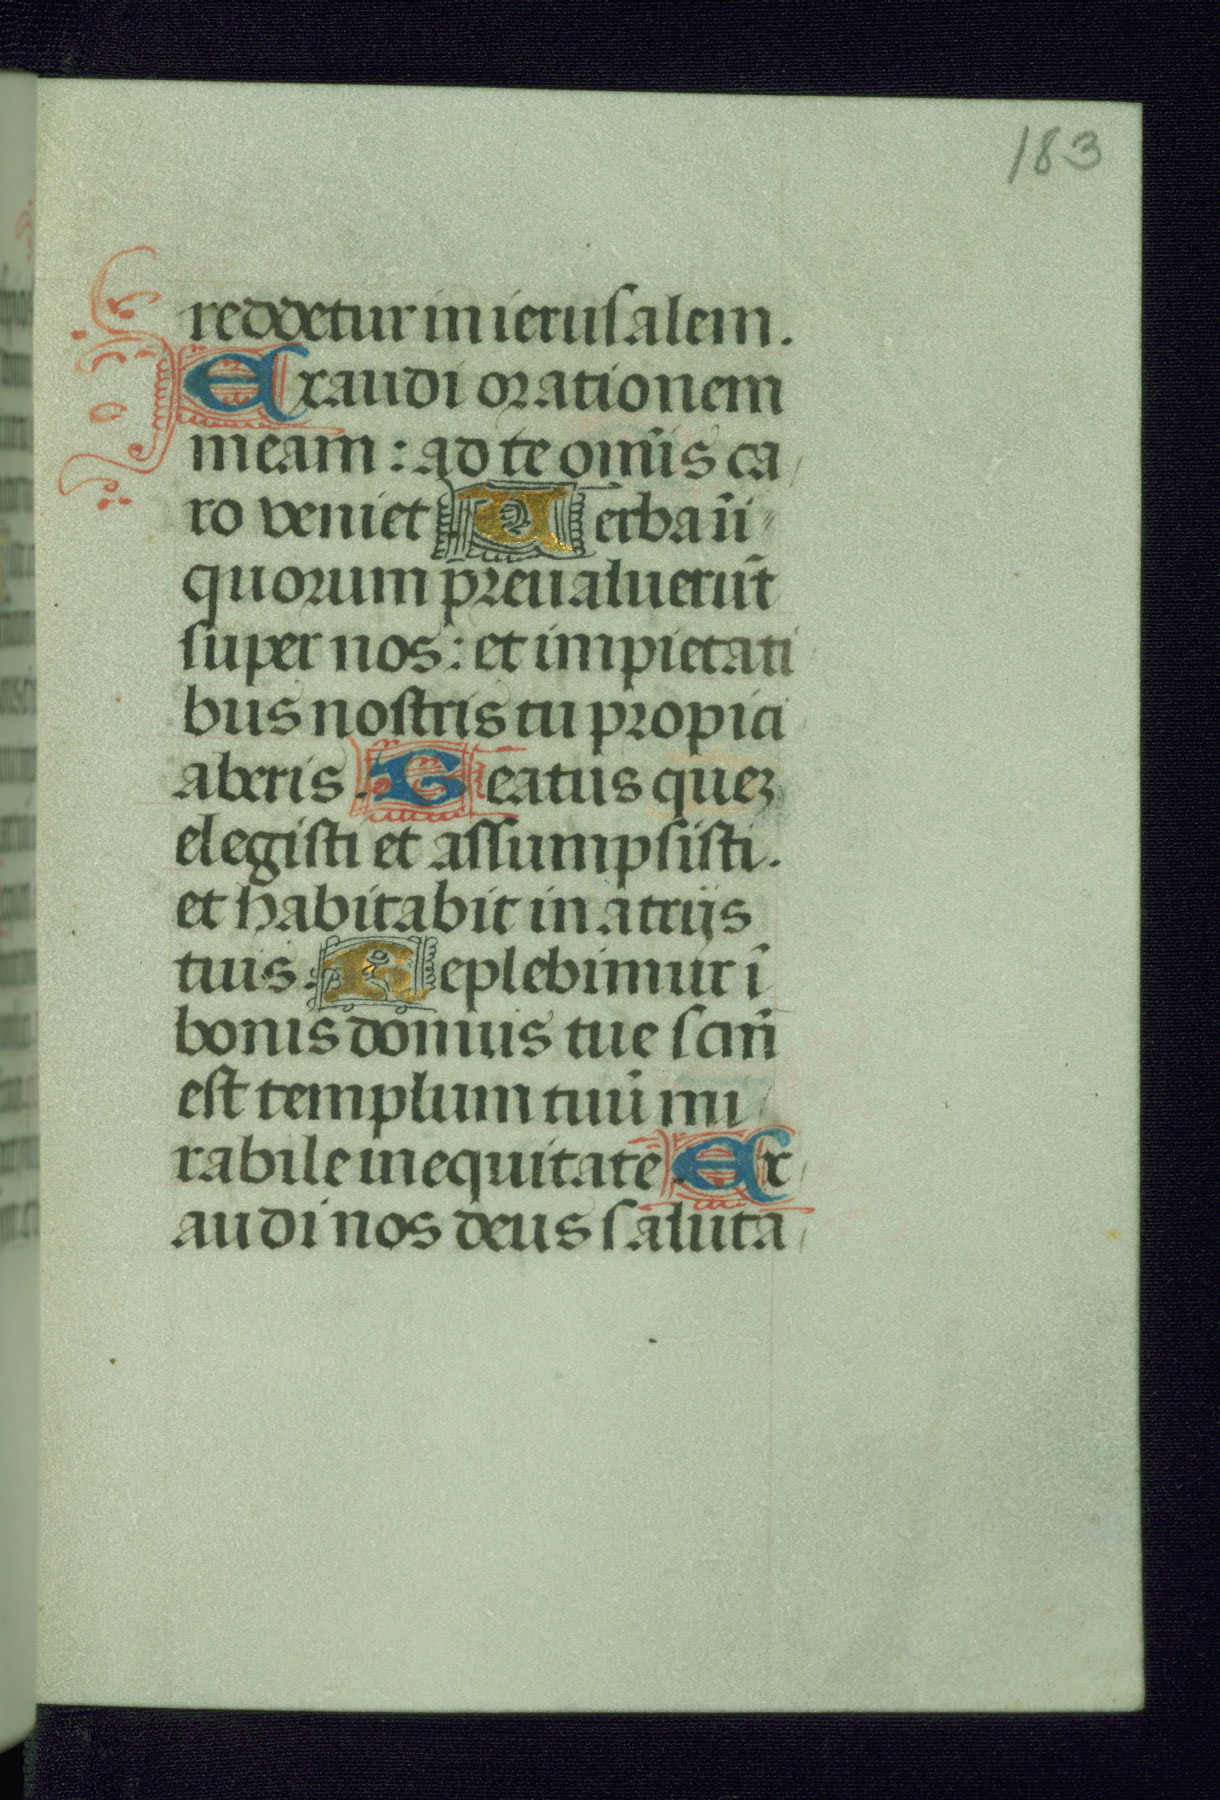 183
reddetur in ierusalem.
Exaudi orationem
meam: ad te om̄is ca
ro veniet Uerba īi
quorum preualuerūt
super nos: et impietati
bus nostris tu propici
aberis. Beatus quez
elegisti et assumpsisti.
et habitabit in atrijs
tuis. Replebimur ī
bonis domus tue sctm̄
est templum tuū mi
rabile in equitate. Ex
audi nos deus saluta